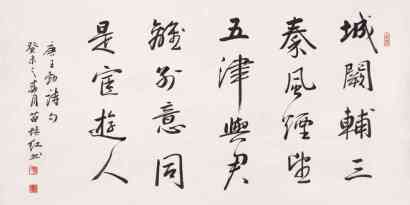 城闕輔三
秦風煙望
五津與君
離別意同
是宦遊人
唐王勃詩句
癸未之春月苗培红书